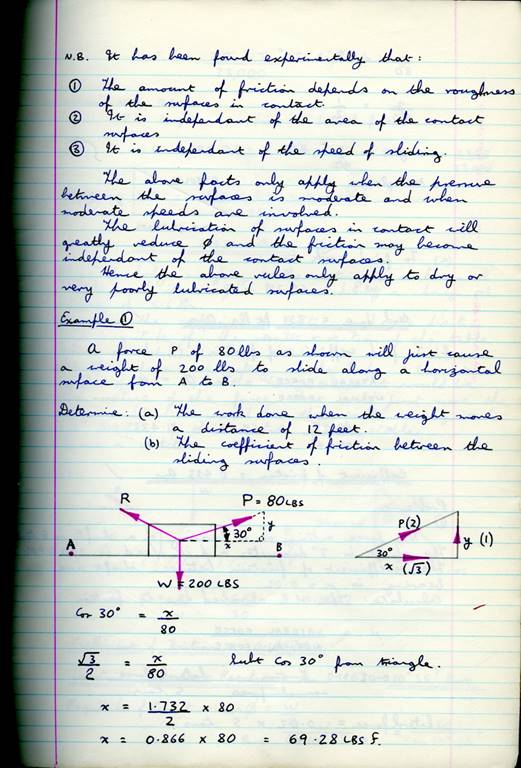 N.B. It has been found experimentally that :
① The amount of friction depends on the roughness
of the surfaces in contact.
② It is independant of the area of the contact
surfaces
③ It is independant of the speed of sliding.
The above facts only apply when the pressure
between the surfaces is moderate and when
moderate speeds are involved.
The lubrication of surfaces in contact will
greatly reduce ø and the friction may become
independant of the contact surfaces.
Hence the above rules only apply to dry or
very poorly lubricated surfaces.
Example ①
A force P of 80 lbs as shown will just cause
a weight of 200 lbs to slide along a horizontal
surface from A to B.
Determine : (a) The work done when the weight moves
a distance of 12 feet.
(b) The coefficient of friction between the
sliding surfaces.
R P = 80 LBS
y
30°
x
A B
W = 200 LBS
P(2)
y (1)
30°
x (√3)
Cos 30° = x/80
√3/2 = x/80 Subt Cos 30° from triangle.
x = 1.732/2 x 80
x = 0.866 x 80 = 69.28 LBS f.